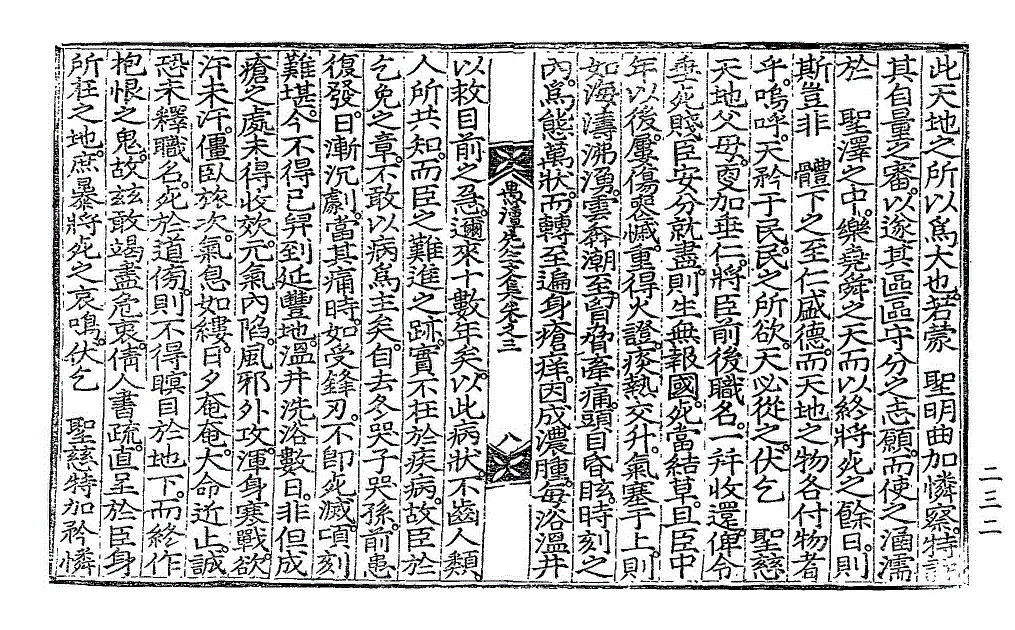 此天地之所以爲大也若蒙 聖明曲加憐察特許
其自量之審以遂其區區守分之志願而使之涵濡
於 聖澤之中樂堯舜之天而以終將死之餘日則
斯豈非 體下之至仁盛德而天地之物各付物者
乎嗚呼天矜于民民之所欲天必從之伏乞 聖慈
天地父母更加垂仁將臣前後職名一幷收還俾令
垂死賤臣安分就盡則生無報國死當結草且臣中
年以後屢傷哀慽重得火證痰熱交升氣塞于上則
如海濤沸湧雲奔潮至胷脅牽痛頭目昏眩時刻之
內爲態萬狀而轉至遍身瘡痒因成濃腫每浴溫井
愚潭先生文集卷之三
八
以救目前之急邇來十數年矣以此病狀不齒人類
人所共知而臣之難進之跡實不在於疾病故臣於
乞免之章不敢以病爲主矣自去冬哭子哭孫前患
復發日漸沉劇當其痛時如受鋒刃不卽死滅頃刻
難堪今不得已舁到延豐地溫井洗浴數日非但成
瘡之處未得收效元氣內陷風邪外攻渾身寒戰欲
汗未汗僵臥旅次氣息如縷日夕奄奄大命近止誠
恐未釋職名死於道傍則不得瞑目於地下而終作
抱恨之鬼故玆敢竭盡危衷倩人書疏直呈於臣身
所在之地庶暴將死之哀鳴伏乞 聖慈特加矜憐
二三二